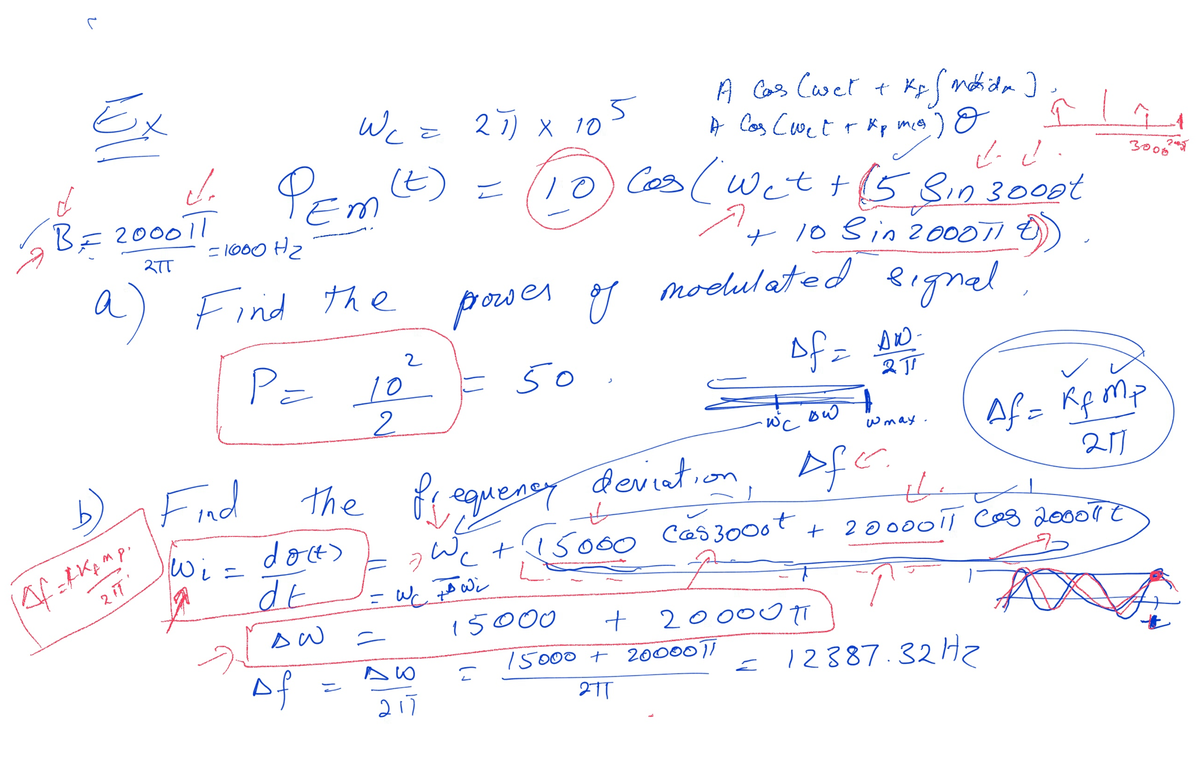 Ex
ωc = 2π × 10^5
A Cos (ωct + Kf ∫ m(α)dα)
A Cos (ωct + Kp m(t)) θ
3000
φEm (t) = 10 Cos (ωct + (5 Sin 3000t
+ 10 Sin 2000π t))
B = 2000π / 2π = 1000 Hz
a) Find the power of modulated signal.
P = 10^2 / 2 = 50.
Δf = Δω / 2π
ωc Δω ωmax.
Δf = Kf mp / 2π
b) Find the frequency deviation, Δf
ωi = dθ(t) / dt = ωc + (15000 Cos 3000t + 20000π Cos 2000πt)
= ωc + Δωi
Δf = Kf mp / 2π
Δω = 15000 + 20000π
Δf = Δω / 2π = 15000 + 20000π / 2π = 12387.32 Hz